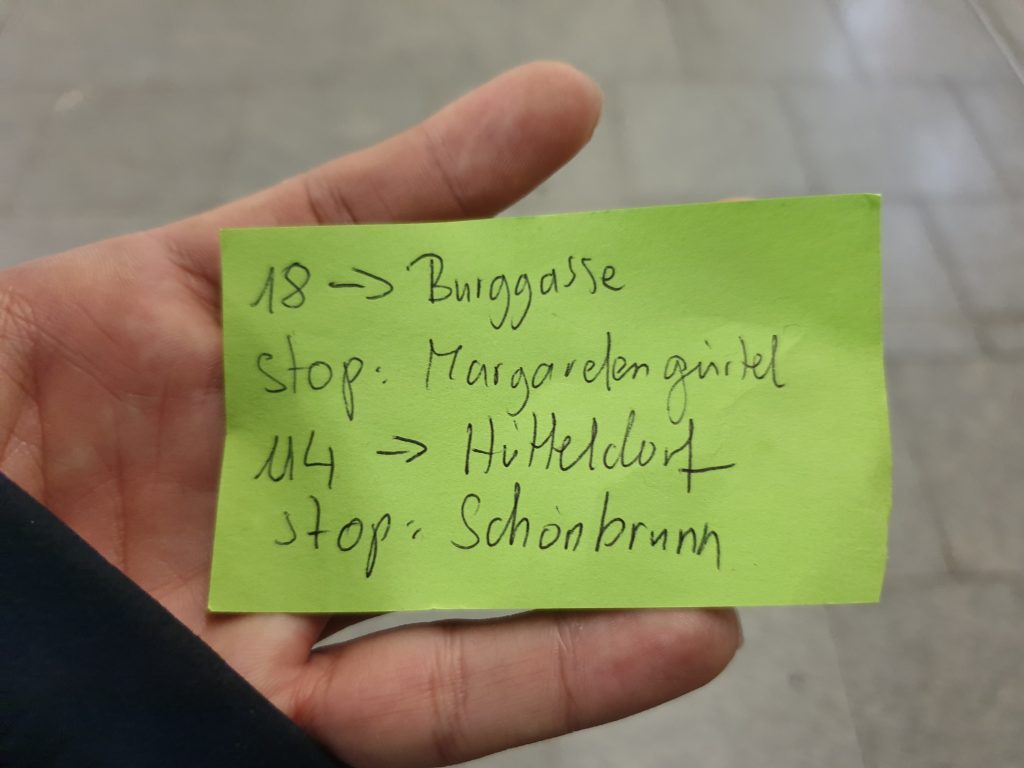 18 -> Burggasse
stop: Margaretengürtel
U4 -> Hütteldorf
stop: Schönbrunn